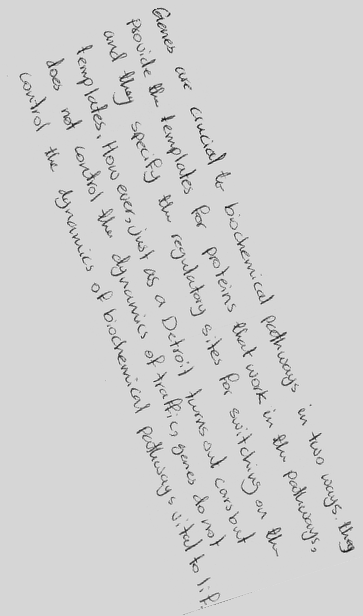 Genes are crucial to biochemical pathways in two ways. they
provide the templates for proteins that work in the pathways,
and they specify the regulatory sites for switching on the
templates. However, just as a Detroit turns out cars but
does not control the dynamics of traffic, genes do not
control the dynamics of biochemical pathways vital to life.